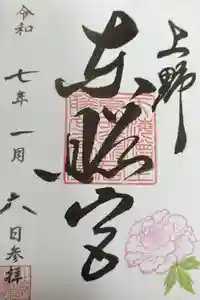 上野
東照宮
令和
七年一月六日参拝